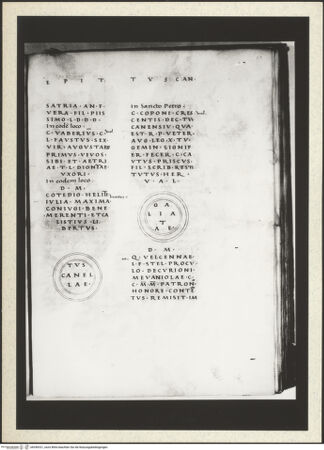 E P I T T V S C A N ·
SATRIA · AN · F ·
VERA · FIL · PIIS
SIMO · L · D · D · D ·
In eodē loco ·
C · VABERIVS · C ·
L · FAVSTVS · SEX
VIR · AVGVSTALIS
PRIMVS · VIVOS ·
SIBI · ET · AETRI
AE · T · L · DIONEAE
VXORI ·
In eodem loco ·
D · M ·
COTEDIO · HELI
IVLIA · MAXIMA
CONIVGI · BENE
MERENTI · ET CA
LISTIVS · LI ·
BERTVS ·
TVS
CANEL
LAE ·
In Sancto Petro :
C · COPONE · CRES
CENTIS · DEC · TV
CANENSIV · QVA
EST · R · P · VETER ·
AVG · LEG · X ·
GEMIN · SIGNIF
ER · FECER · C · CA
VTVS · PRISCVS ·
FIL · SCRIB · RESTI
TVTVS · HER ·
V · A · L ·
G
A L
L I A
T
A E ·
D · M ·
Q · VELCENNAE ·
L · F · STEL · PROCV
LO · DECVRIONI ·
MEVANIOLAE · C ·
C · M · M · PATRON ·
HONORE · CONTE
TVS · REMISIT · IM